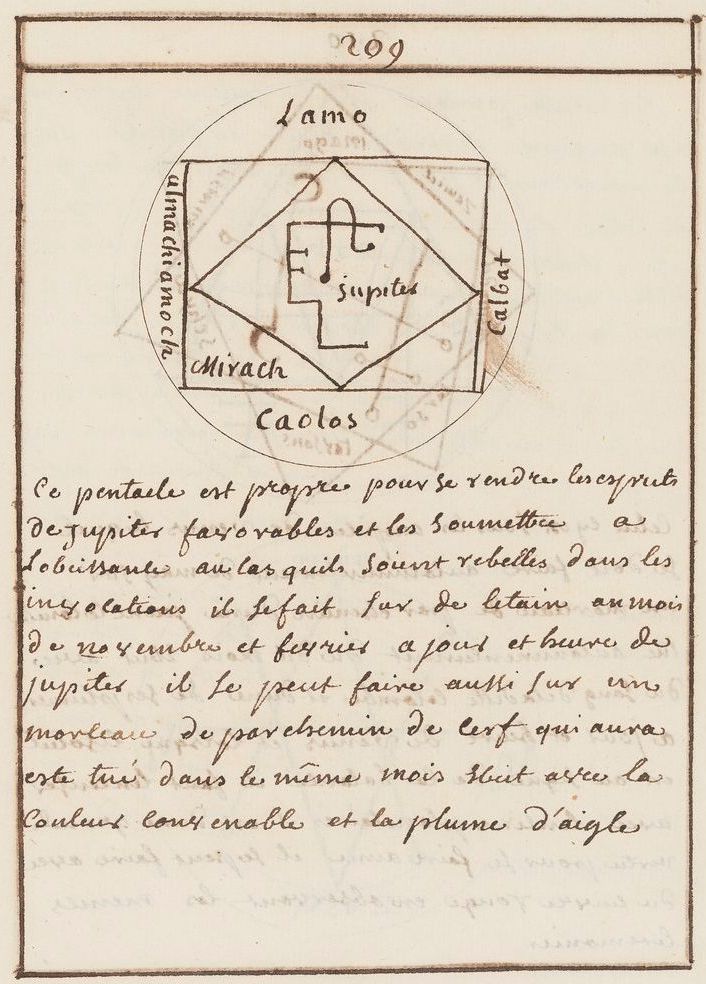 209
Lamo
almachiamoch
jupiter
Calbat
Mirach
Caolos
Ce pentacle est propre pour se rendre les esprits
de Jupiter favorables et les soumettre a
Lobeissance au cas quils soient rebelles dans les
invocations il se fait sur de letain au mois
de novembre et fevrier a jour et heure de
jupiter il se peut faire aussi sur un
morceau de parchemin de cerf qui aura
esté tué dans le même mois avec la
Couleur convenable et la plume d'aigle